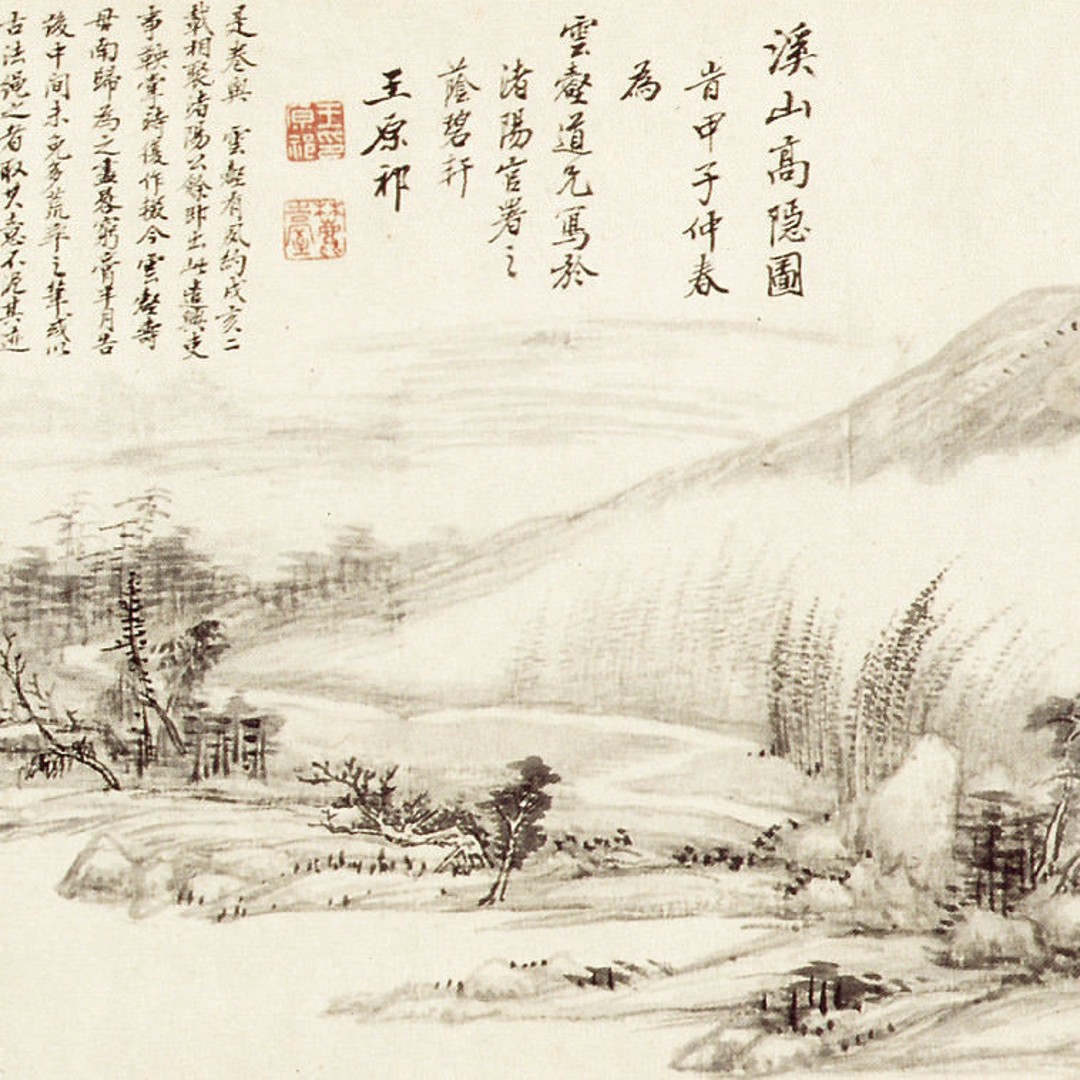 溪山高隱圖
肯甲子仲春
為
雲壑道兄寫於
渚陽官署之
蔭碧軒
王原祁
是卷與 雲壑有夙約戊亥二
載相聚渚陽公餘即出此遣興吏
事鞅掌時復作輟今雲壑壽
母南歸為之盡晷窮膏半月告
後中间未免多荒率之筆或以
古法繩之者取其意不泥其迹